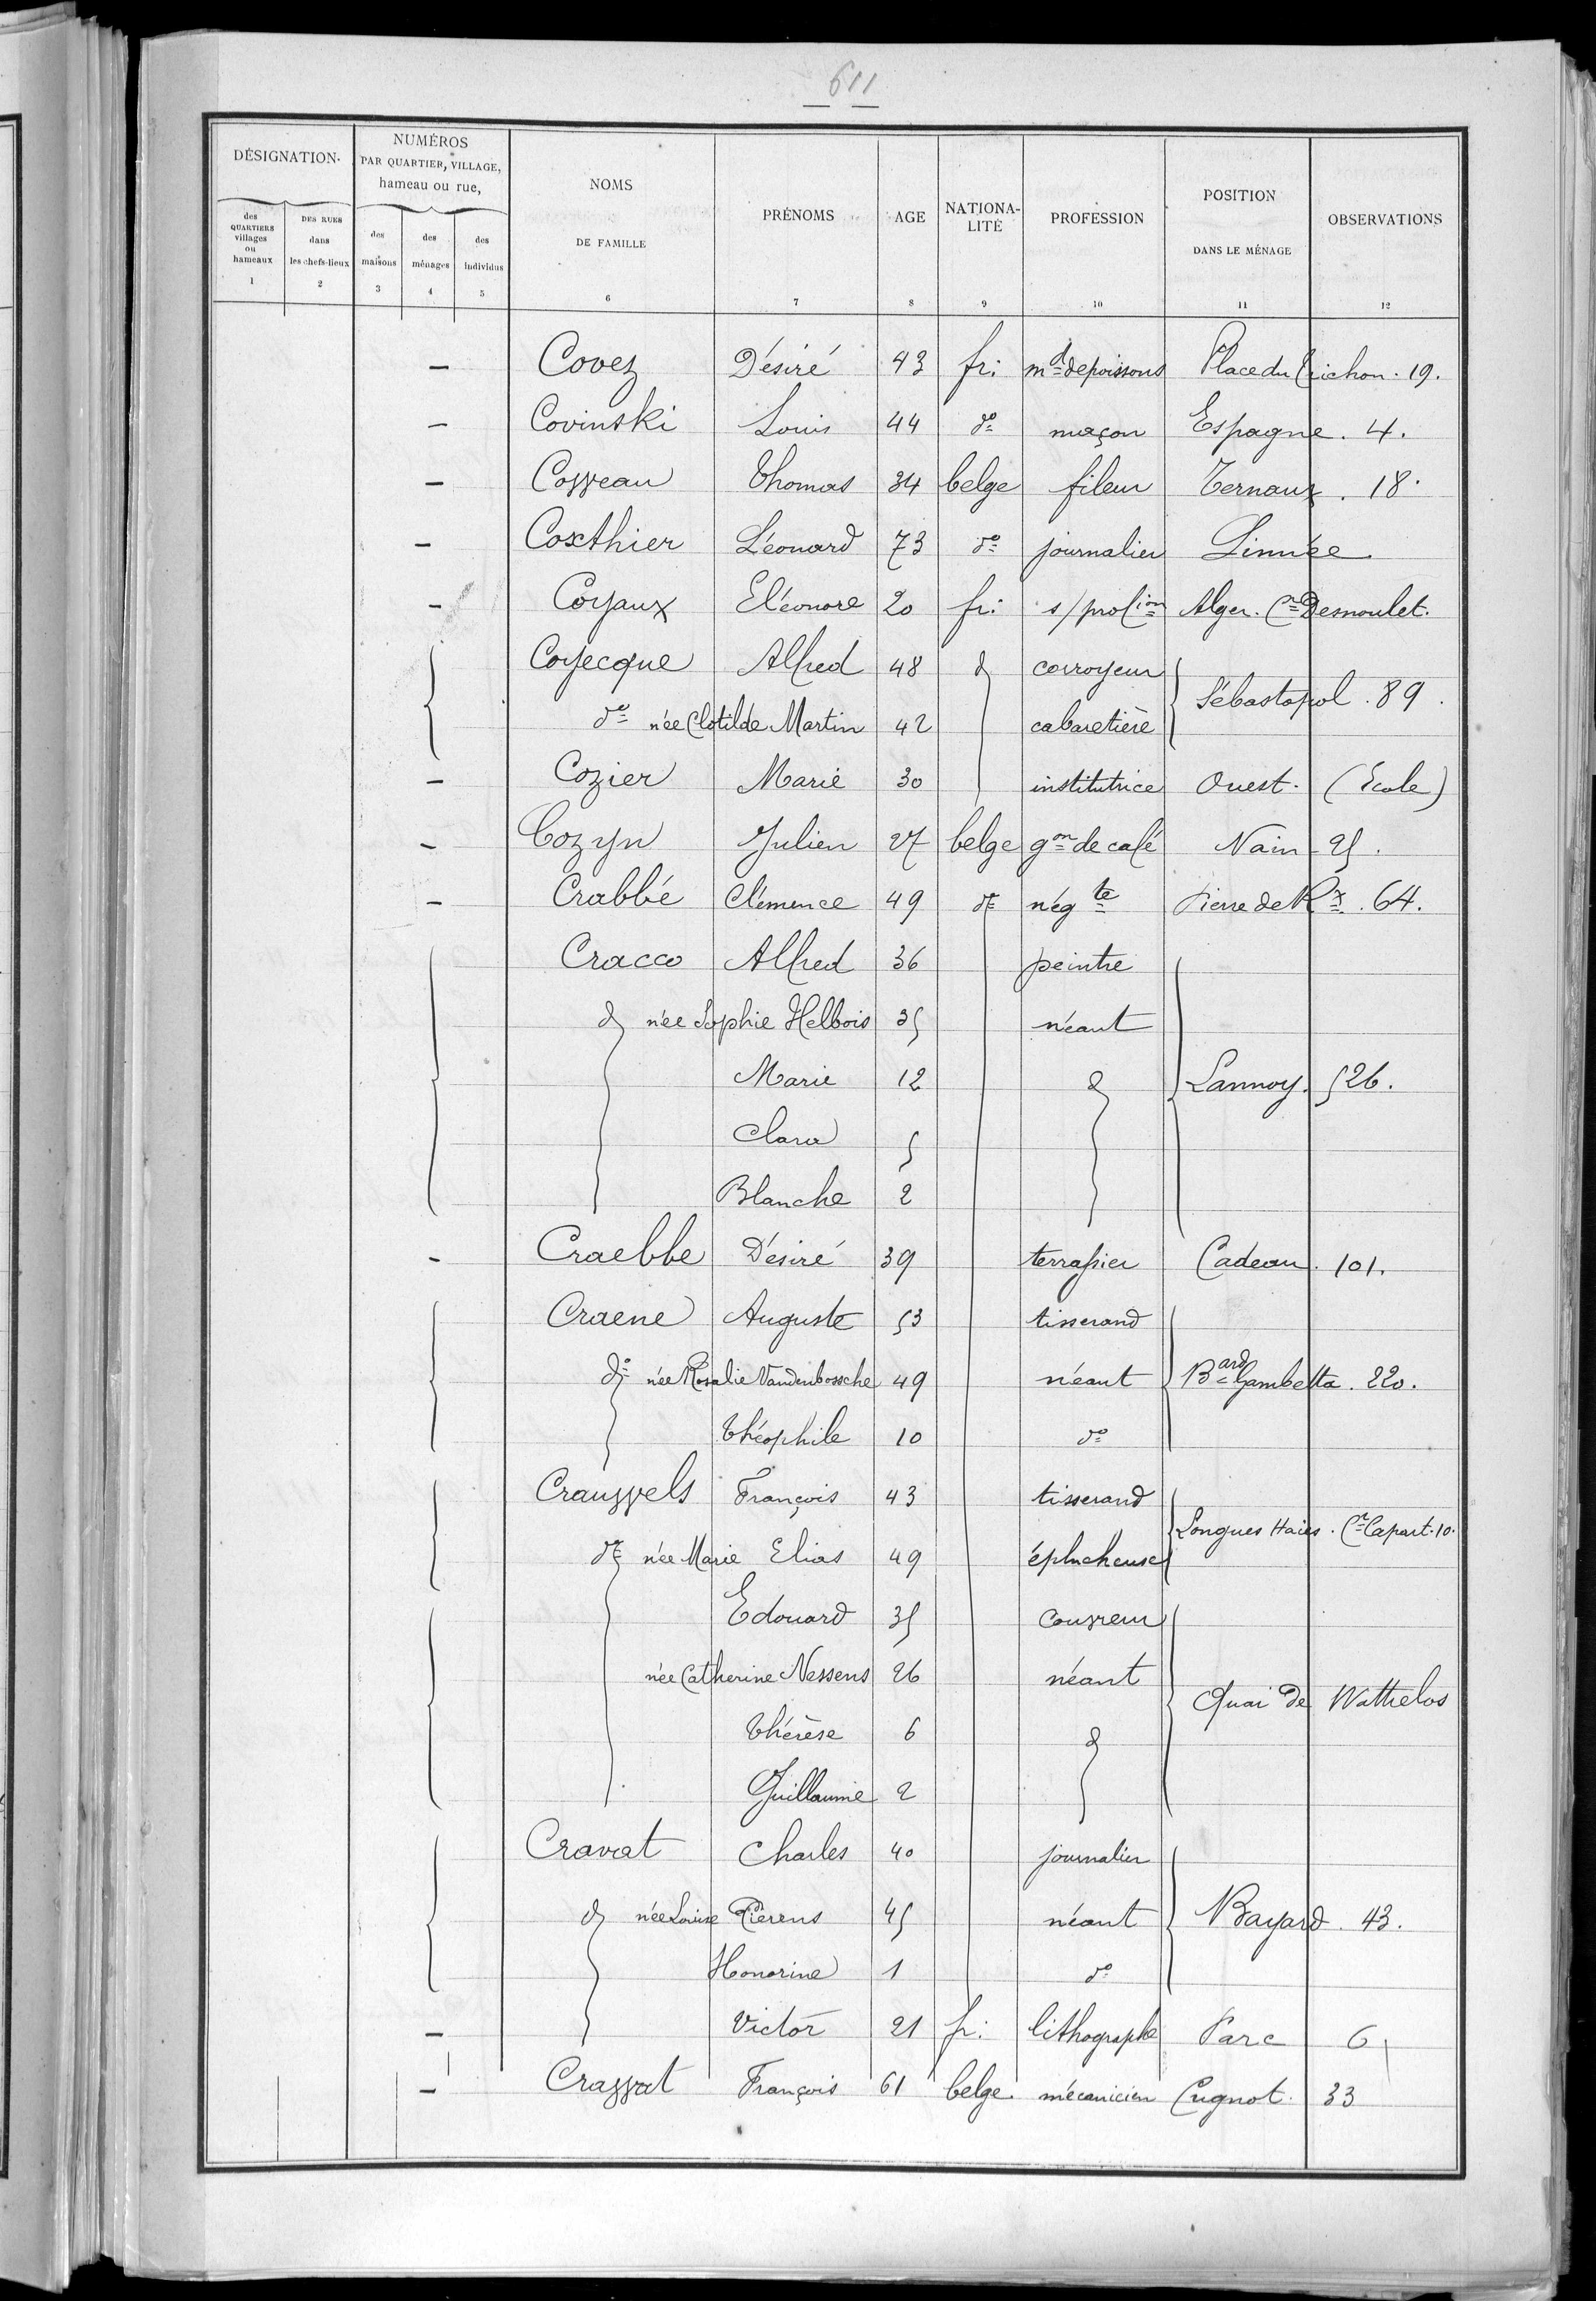 611
DÉSIGNATION
NUMÉROS PAR QUARTIER, VILLAGE, hameau ou rue,
NOMS DE FAMILLE
PRÉNOMS
AGE
NATIONA-LITÉ
PROFESSION
POSITION DANS LE MÉNAGE
OBSERVATIONS
des QUARTIERS villages ou hameaux
DES RUES dans les chefs-lieux
des maisons
des ménages
des individus
1 2 3 4 5 6 7 8 9 10 11 12
— Covez Désiré 43 fr: md de poissons Place du Trichon. 19.
— Covinski Louis 44 do maçon Espagne. 4.
— Covveau Thomas 34 belge fileur Ternaux. 18.
— Coxthier Léonard 73 do journalier Linnée
— Coyaux Eléonore 20 fr: s/profion Alger. Cr Desmoulet.
Coyecque Alfred 48 d corroyeur
Sébastopol. 89.
do née Clotilde Martin 42 cabaretière
— Cozier Marie 30 institutrice Ouest. (Ecole)
— Cozyn Julien 27 belge gon de café Nain 25.
— Crabbé Clémence 49 do négte Pierre de Rx. 64.
Cracco Alfred 36 peintre
d née Sophie Helbois 35 néant
Marie 12 d Lannoy. 526.
Clara 5
Blanche 2
— Craebbe Désiré 39 terrassier Cadeau. 101.
Craene Auguste 53 tisserand
do née Rosalie Vandenbossche 49 néant Bard Gambetta. 220.
Théophile 10 do
Crauwels François 43 tisserand
Longues Haies. Cr Capart. 10.
do née Marie Elias 49 éplucheuse
Edouard 35 couvreur
née Catherine Nessens 26 néant
Quai de Wattrelos
Thérèse 6 d
Guillaume 2
Cravat Charles 40 journalier
d née Louise Pièrens 45 néant Bayard. 43.
Honorine 1 do
— Victor 21 fr: lithographe Parc 6
— Cravvat François 61 belge. mécanicien Cugnot. 33